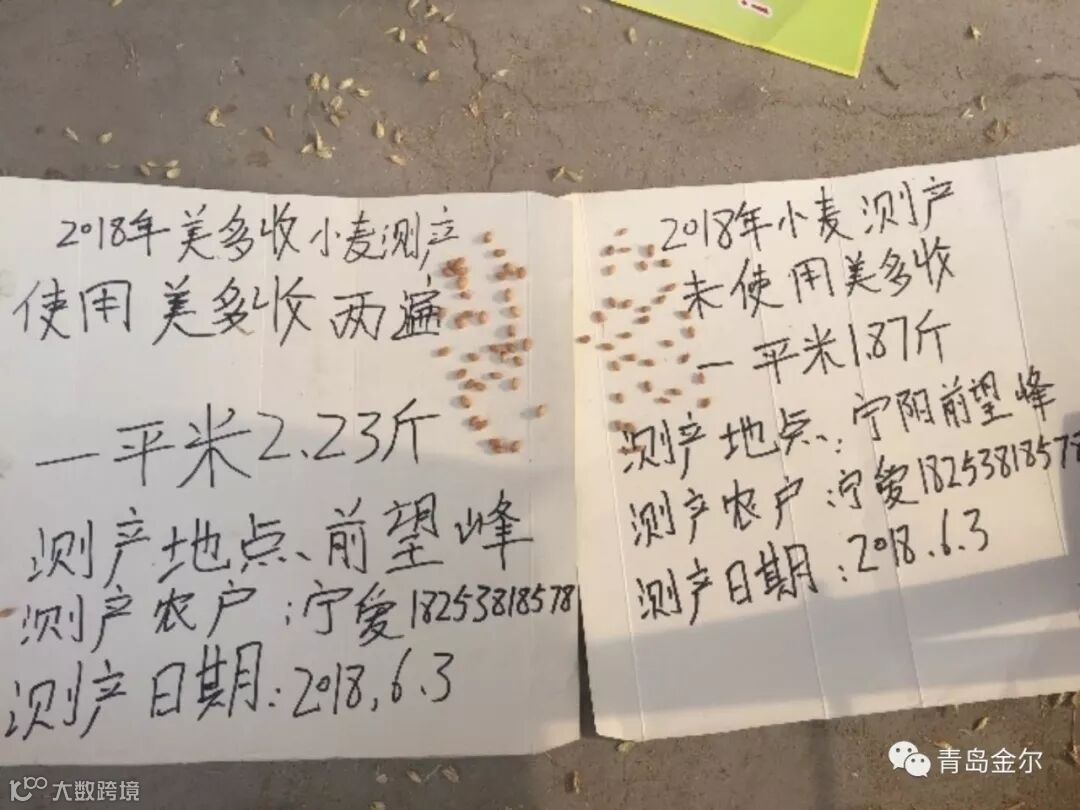 2018年美多收小麦测产
使用美多收两遍
一平米2.23斤
测产地点、前望峰
测产农户:宁爱18253818578
测产日期:2018.6.3
2018年小麦测产
未使用美多收
一平米1.87斤
测产地点:宁阳前望峰
测产农户:宁爱18253818578
测产日期:2018.6.3
青岛金尔
大数跨境